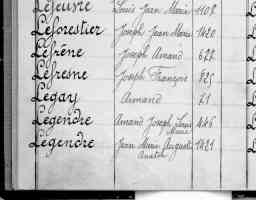 Lejeusre Louis Jean Marie 1108
Leforestier Joseph Jean Marie 1420
Lefrêne Joseph Amand 677
Lefresne Joseph François 825
Legay Armand 21
Legendre Amand Joseph Louis 446
Marie
Legendre Jean Marie Auguste 1421
Anatole